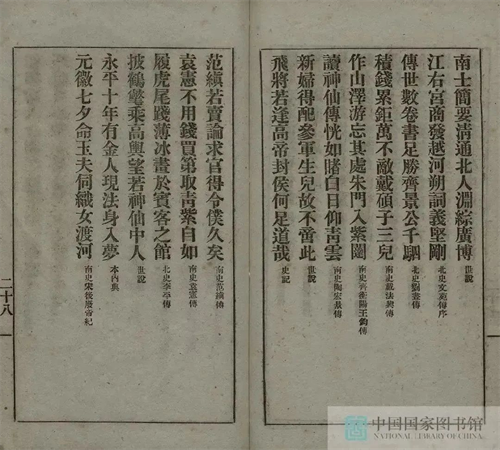 南士簡要清通北人淵綜廣博 世說
江右宮商發越河朔詞義堅剛 北史文苑傳序
傳世數卷書足勝齊景公千駟 北史劉晝傳
積錢累鉅萬不敵戴碩子三兒 南史戴法興傳
作山澤游忘其處朱門入紫闥 南史齊衡陽王鈞傳
讀神仙傳恍如睹白日仰青雲 南史陶宏景傳
新婦得配參軍生兒故不啻此 世說
飛將若逢高帝封侯何足道哉 史記
范縝若賣論求官得令僕久矣 南史范縝傳
袁憲不用錢買第取青紫自如 南史袁憲傳
履虎尾踐薄冰畫於賓客之館 北史李孝傳
披鶴氅乘高輿望若神仙中人 世說
永平十年有金人現法身入夢 本內典
元徽七夕命玉夫伺織女渡河 南史宋後廢帝紀
二十八
中国国家图书馆
NATIONAL LIBRARY OF CHINA